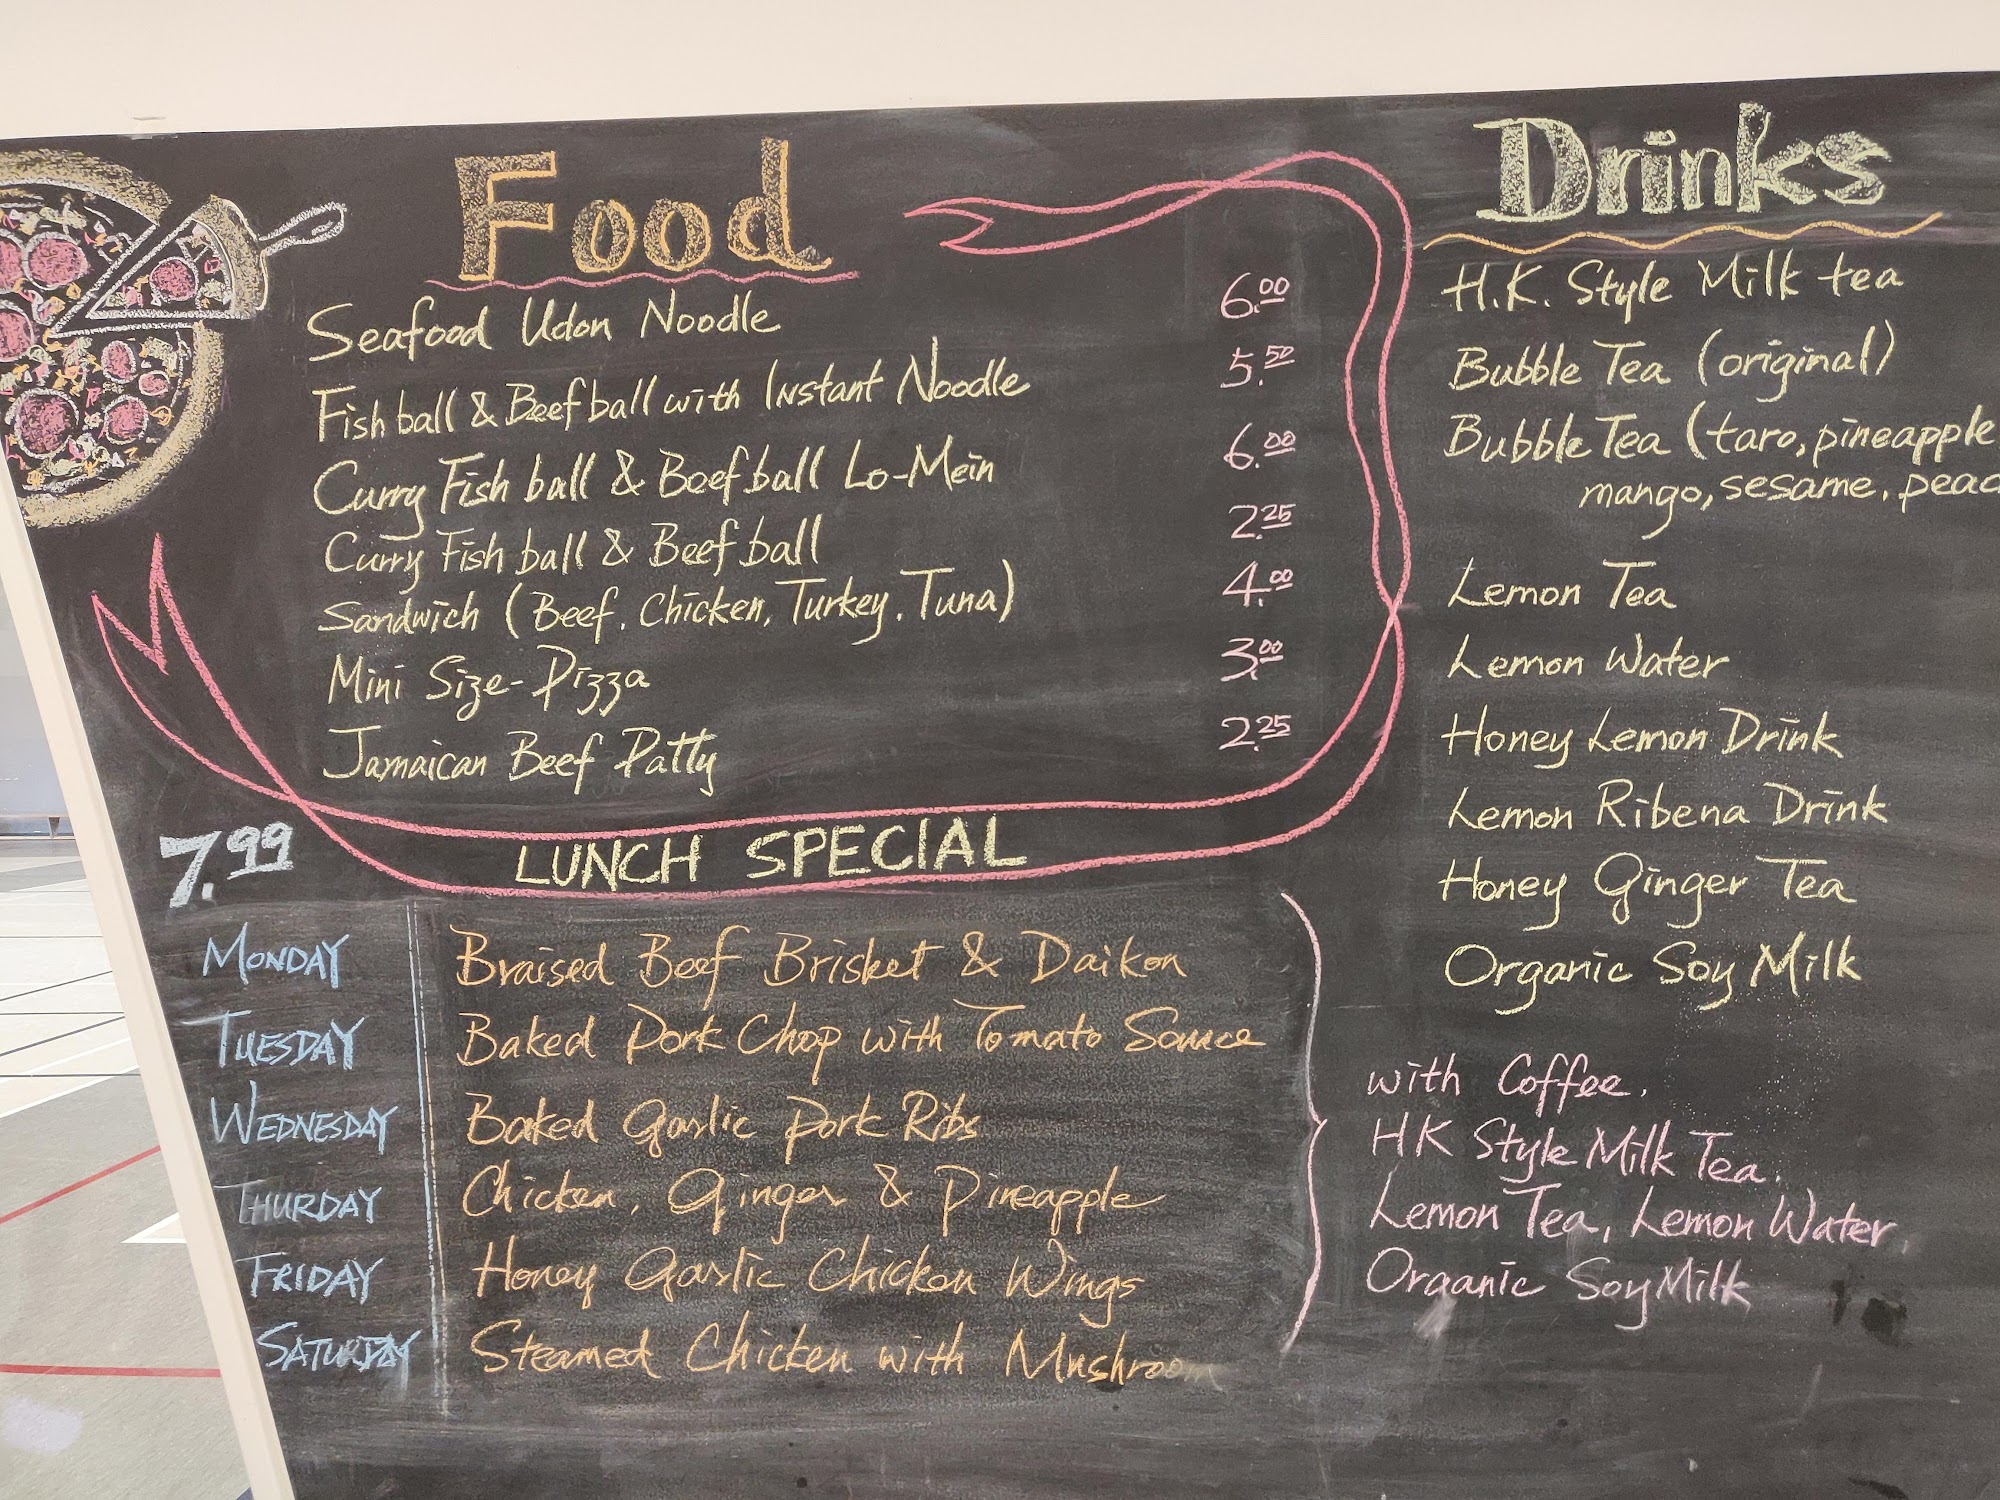 Food
Seafood Udon Noodle 6.00
Fish ball & Beef ball with Instant Noodle 5.50
Curry Fish ball & Beef ball Lo-Mein 6.00
Curry Fish ball & Beef ball 2.25
Sandwich (Beef, Chicken, Turkey, Tuna) 4.00
Mini Size-Pizza 3.00
Jamaican Beef Patty 2.25
7.99 LUNCH SPECIAL
MONDAY Braised Beef Brisket & Daikon
TUESDAY Baked Pork Chop with Tomato Sauce
WEDNESDAY Baked Garlic Pork Ribs
THURDAY Chicken, Ginger & Pineapple
FRIDAY Honey Garlic Chicken Wings
SATURDAY Steamed Chicken with Mushroom
Drinks
H.K. Style Milk tea
Bubble Tea (original)
Bubble Tea (taro, pineapple
mango, sesame, peac
Lemon Tea
Lemon Water
Honey Lemon Drink
Lemon Ribena Drink
Honey Ginger Tea
Organic Soy Milk
with Coffee,
HK Style Milk Tea,
Lemon Tea, Lemon Water,
Organic Soy Milk